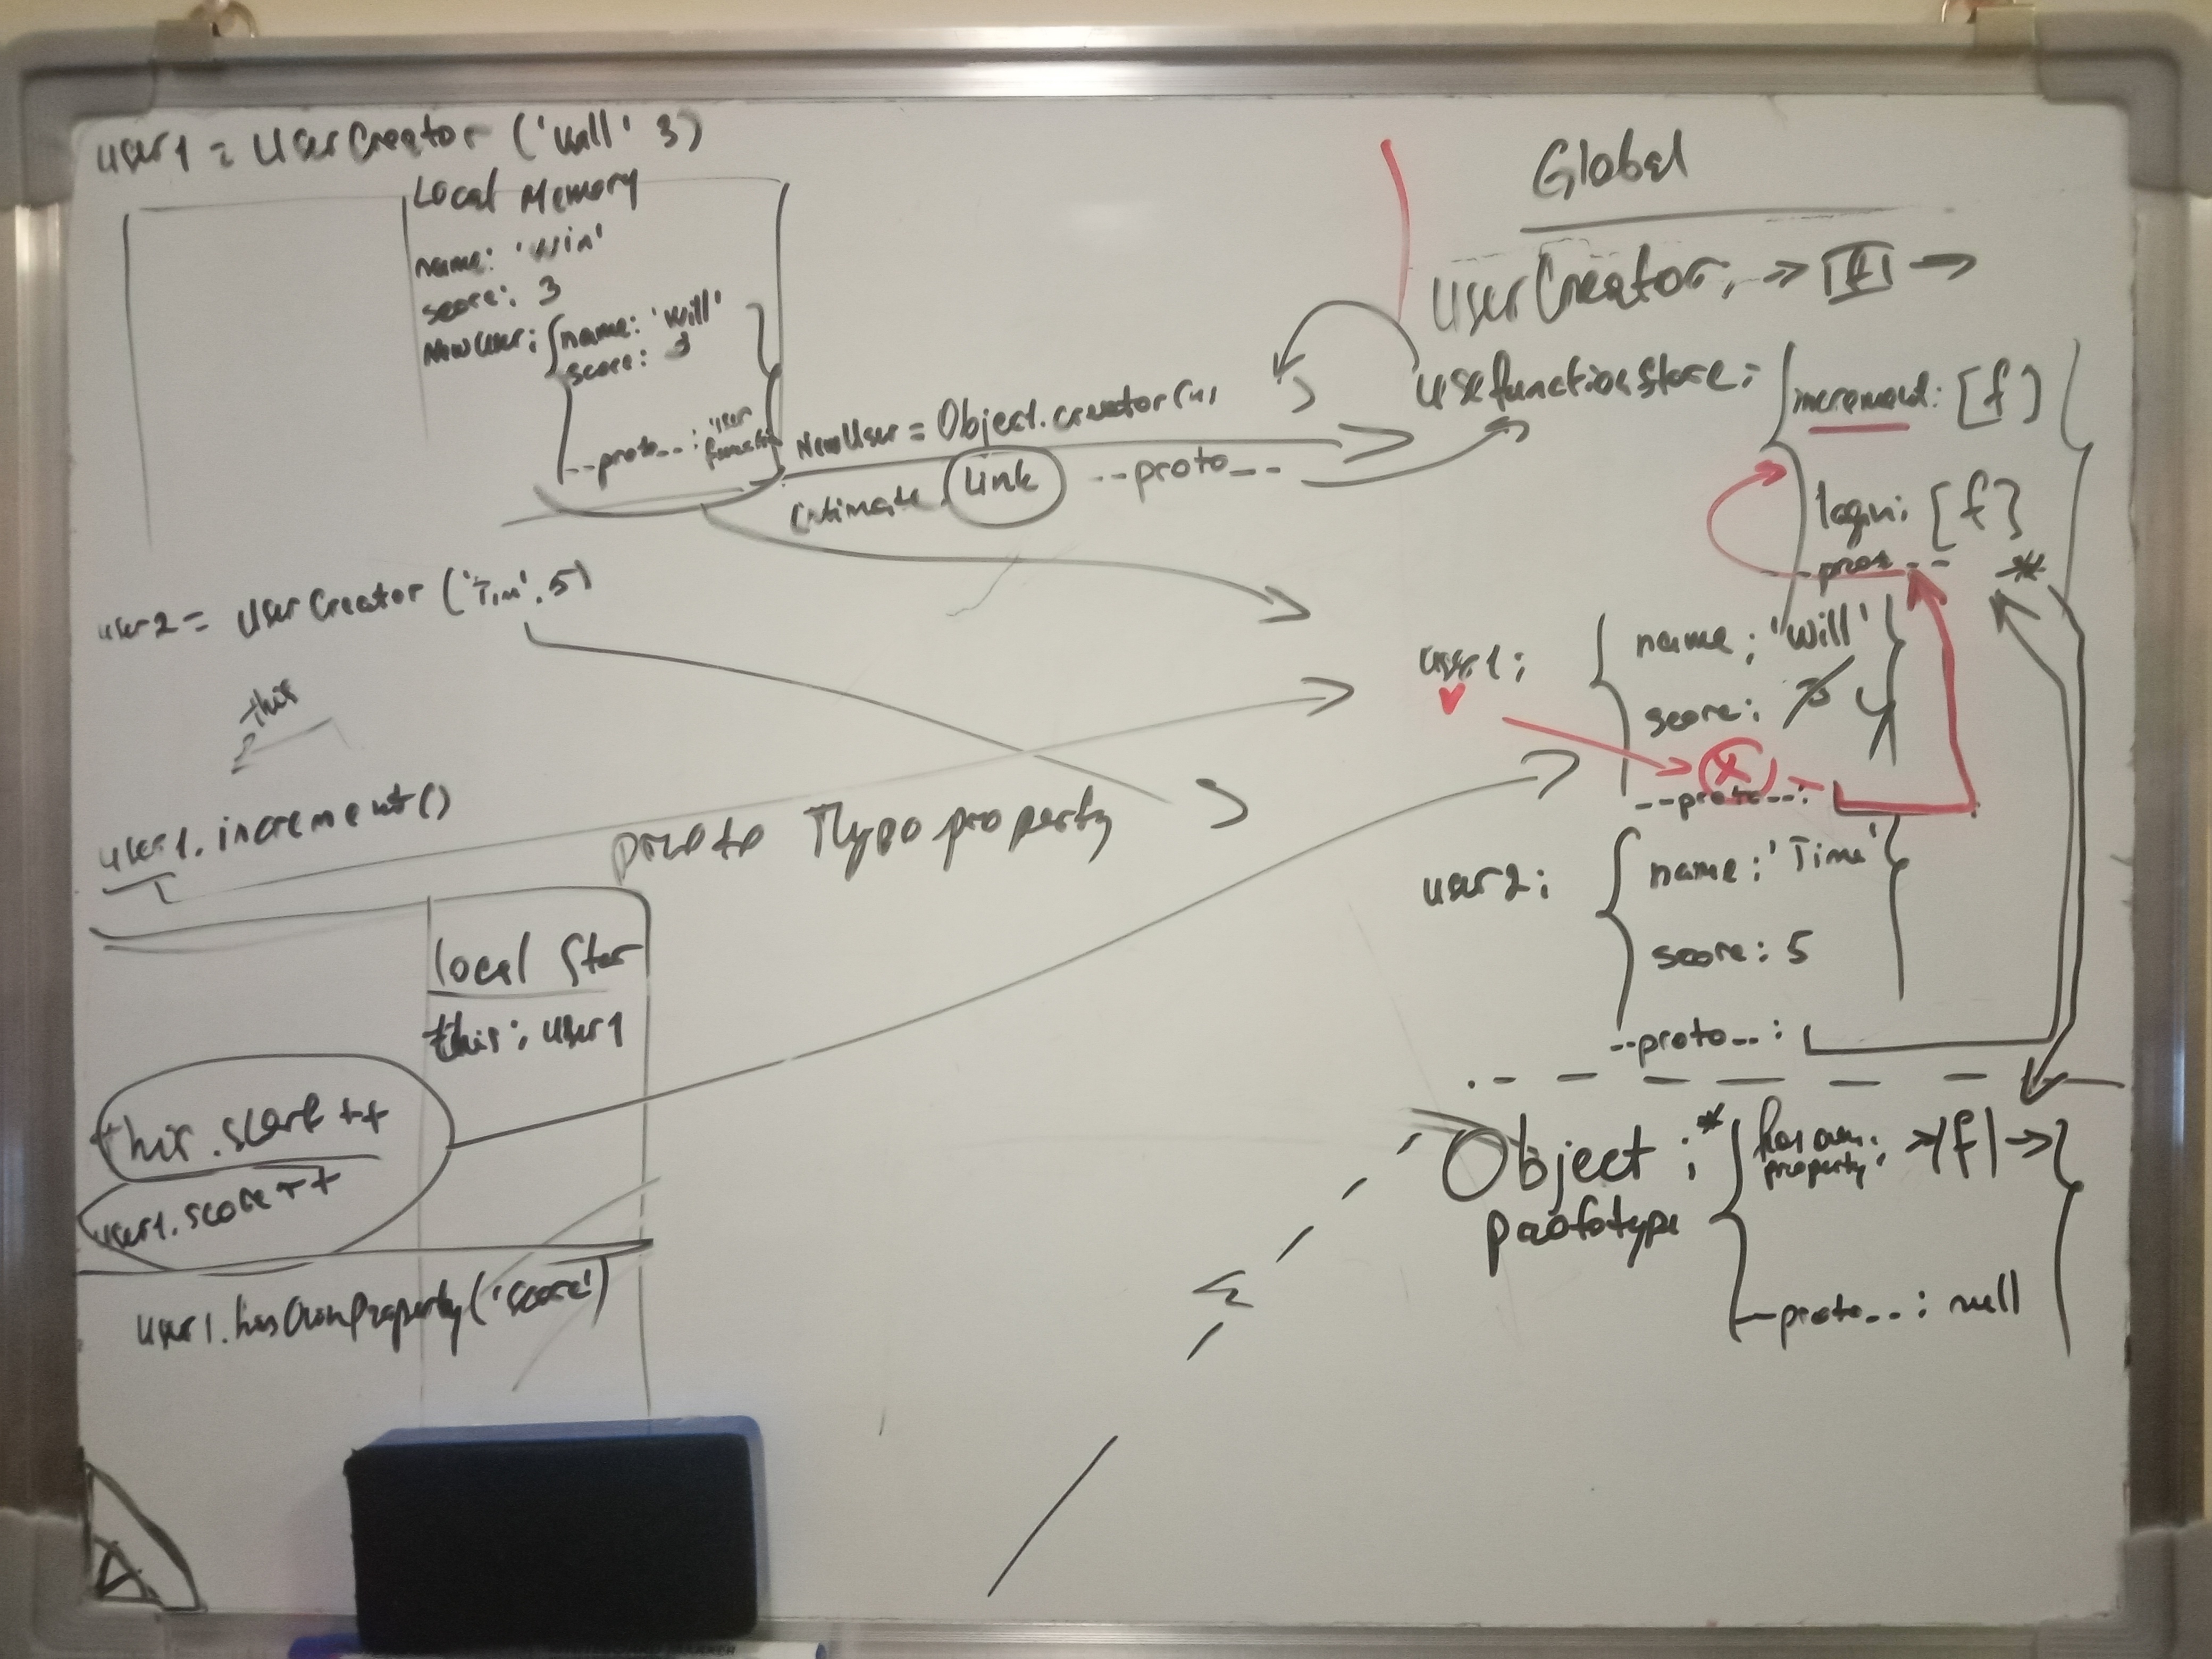 user1 = UserCreator ('Will' 3)
Local Memory
name: 'Win'
score: 3
NewUser: { name: 'Will'
score: 3
--proto--: user
functi
NewUser = Object.creator(
intimate Link --proto--
user2 = UserCreator ('Tim', 5)
this
user1.increment()
proto property
local Stor
this: user1
this.score++
user1.score++
user1.hasOwnProperty('score')
Global
UserCreator: → [f] →
usefunctionStore: { increment: [f] }
login: [f]
--prot-- *
user1: { name: 'Will' }
score: 3 4
x
--proto--:
user2: { name: 'Time' }
score: 5
--proto--:
Object :* { has own: → |f| → }
property:
prototype
--proto--: null